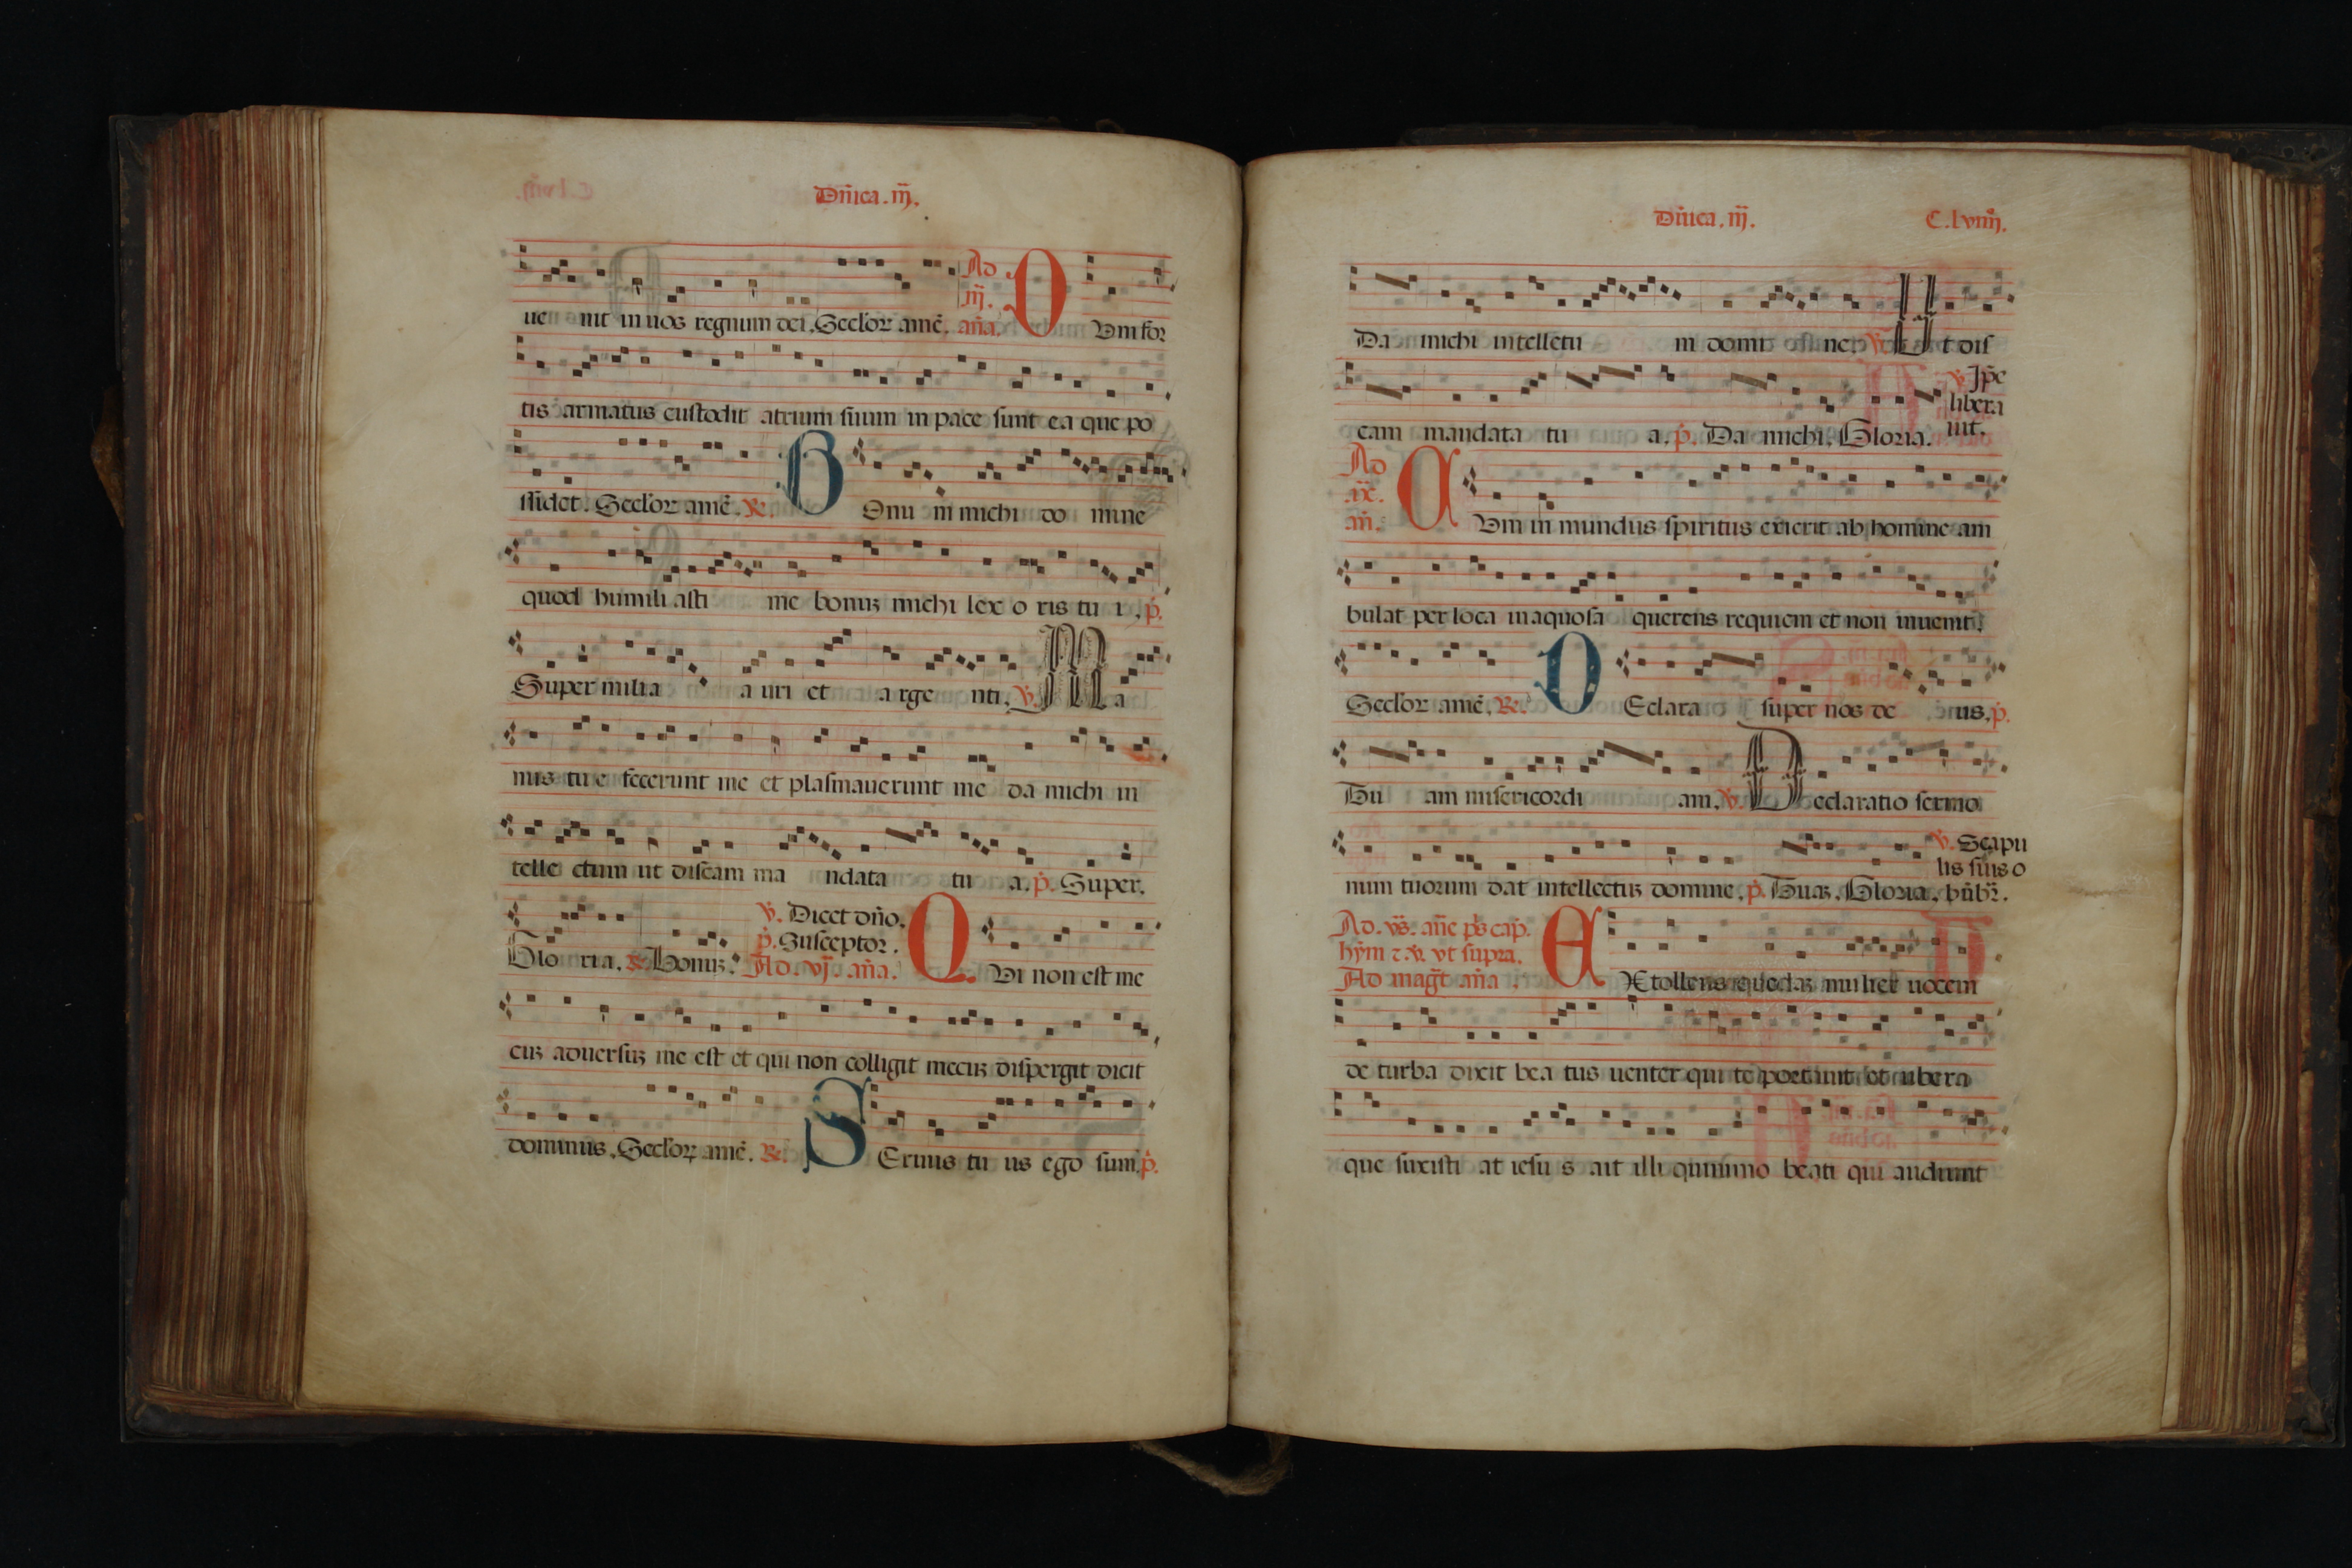 Dñica. iij.
ue nit in uos regnum dei. Seclor amē. Ad iij. aña. D Vm for
tis armatus custodit atrium suum in pace sunt ea que po
ssidet. Seclor amē. R. B Onu m michi do mine
quod humili asti me bonus michi lex o ris tu i. p.
Super milia a uri et a rge nti. V. Ma
nus tu e fecerunt me et plasmauerunt me da michi in
telle ctum ut discam ma ndata tu a. p. Super.
Glo ria. R. Bonus.
V. Dicet dño.
p. Susceptor.
Ad. vj. aña. Q Vi non est me
cus aduersus me est et qui non colligit mecus dispergit dicit
dominus. Seclor amē. R. S Eruus tu us ego sum. p.
Dñica. iij. C. lviiij.
Da michi intellectu m domi ne. V. Ut dis
cam mandata tu a. p. Da michi. Gloria. V. Ipe libera uit.
Ad ñc. añ. C Vm in mundus spiritus exierit ab homine am
bulat per loca inaquosa querens requiem et non inuenit.
Seclor amē. R. D Eclara super nos de us. p.
Tu am misericordi am. V. Declaratio sermo
num tuorum dat intellectus domine. p. Tuas. Gloria. V. Scapulis suis o bubr.
Ad. vs. añe ps cap.
hym z V. vt supra.
Ad magt aña. E Xtollens quedas mulier uocem
de turba dixit bea tus uenter qui te portauit et ubera
que suxisti at iesu s ait illi quinimo beati qui audiunt